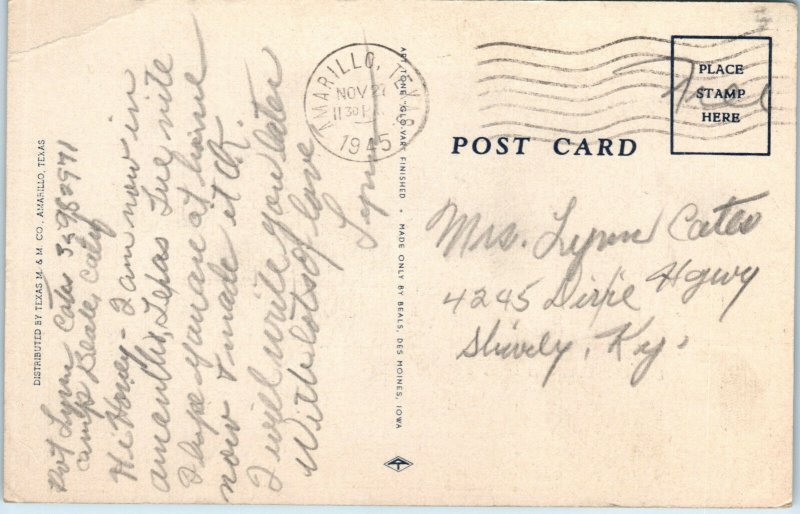 DISTRIBUTED BY TEXAS M. & M. CO., AMARILLO, TEXAS
Pvt Lynn Cates 35982971
Camp Beale, Calif
Hi Honey - I am now in
Amarillo, Texas Tue nite
I hope you are at home
now & made it OK.
I will write you later
With lots of love
Lynn
ART TONE "GLO-VAR" FINISHED • MADE ONLY BY BEALS, DES MOINES, IOWA
AMARILLO, TEXAS
NOV 27
11 30 P
1945
POST CARD
PLACE
STAMP
HERE
Free
Mrs. Lynn Cates
4245 Dixie Hgwy
Shively, Ky.